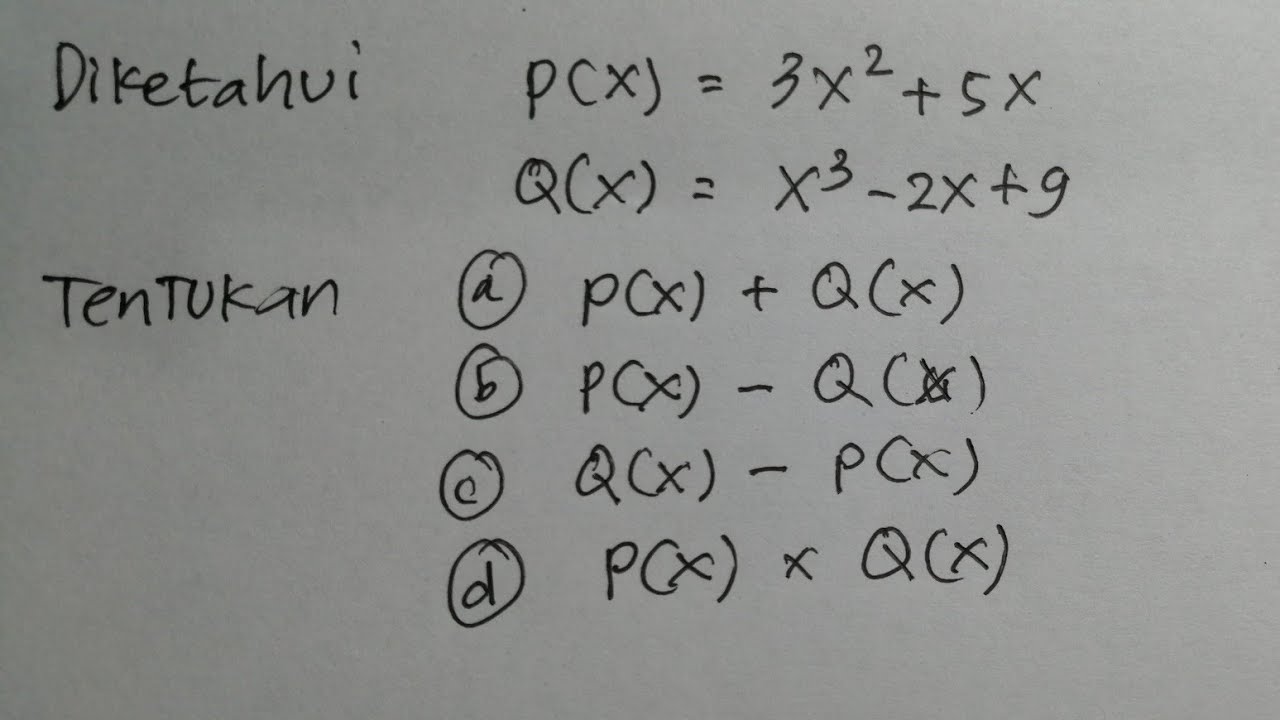 Diketahui P(x) = 3x² + 5x
Q(x) = x³ - 2x + 9
Tentukan ⓐ P(x) + Q(x)
ⓑ P(x) - Q(x)
ⓒ Q(x) - P(x)
ⓓ P(x) × Q(x)